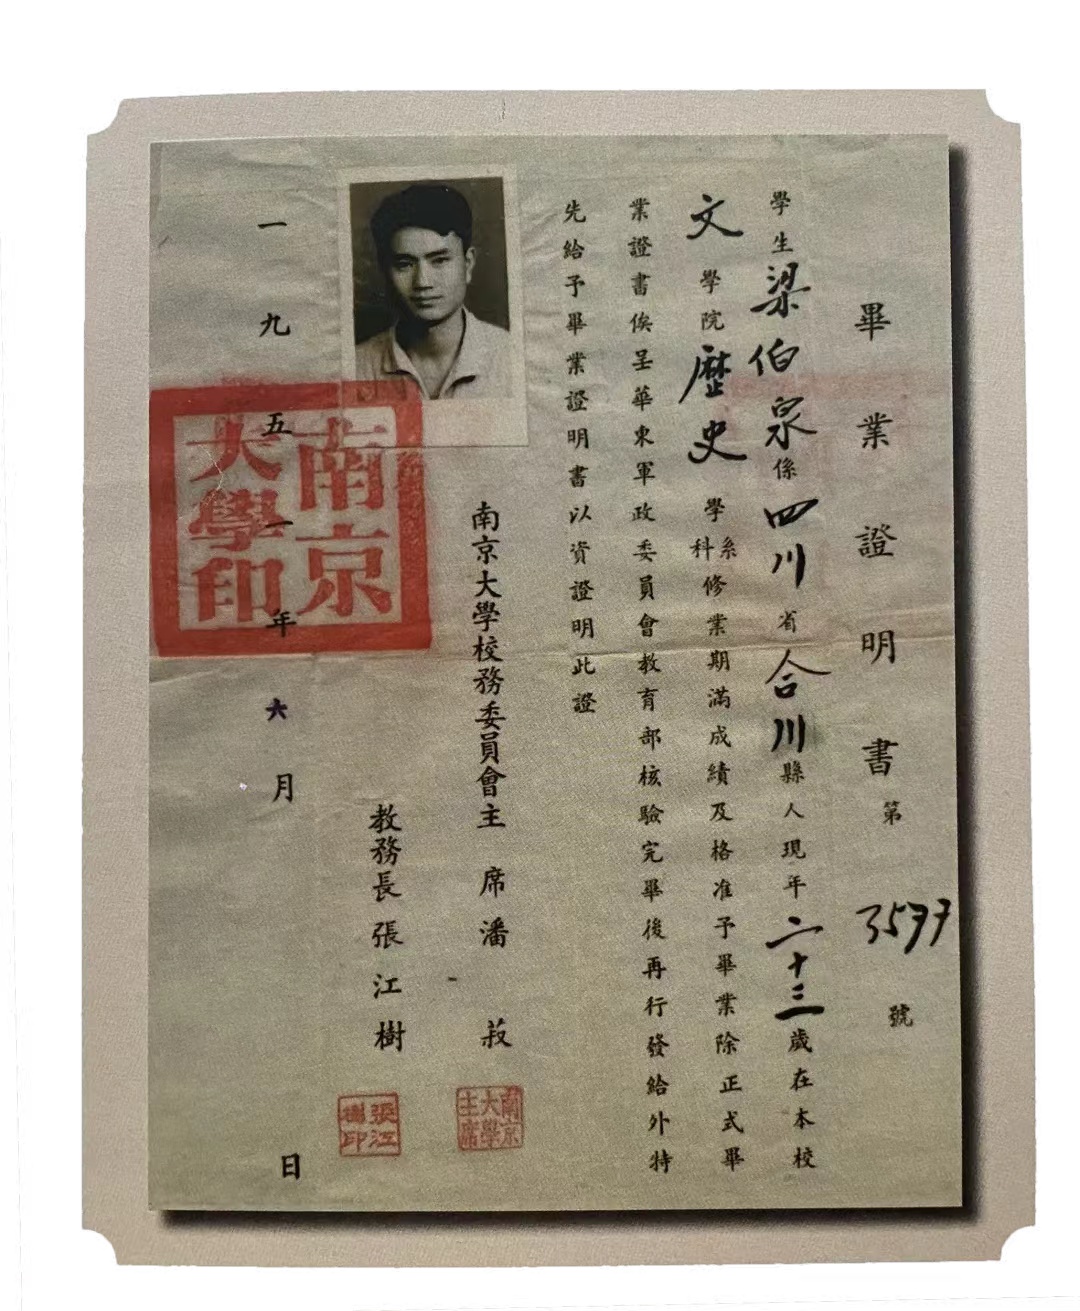 畢業證明書 第3577號
學生梁伯泉係四川省合川縣人現年二十三歲在本校
文學院歷史學系科修業期滿成績及格准予畢業除正式畢
業證書俟呈華東軍政委員會教育部核驗完畢後再行發給外特
先給予畢業證明書以資證明此證
南京大學校務委員會主席潘菽
南京大學主席
教務長張江樹
張江樹印
一九五一年六月 日
南京大學印